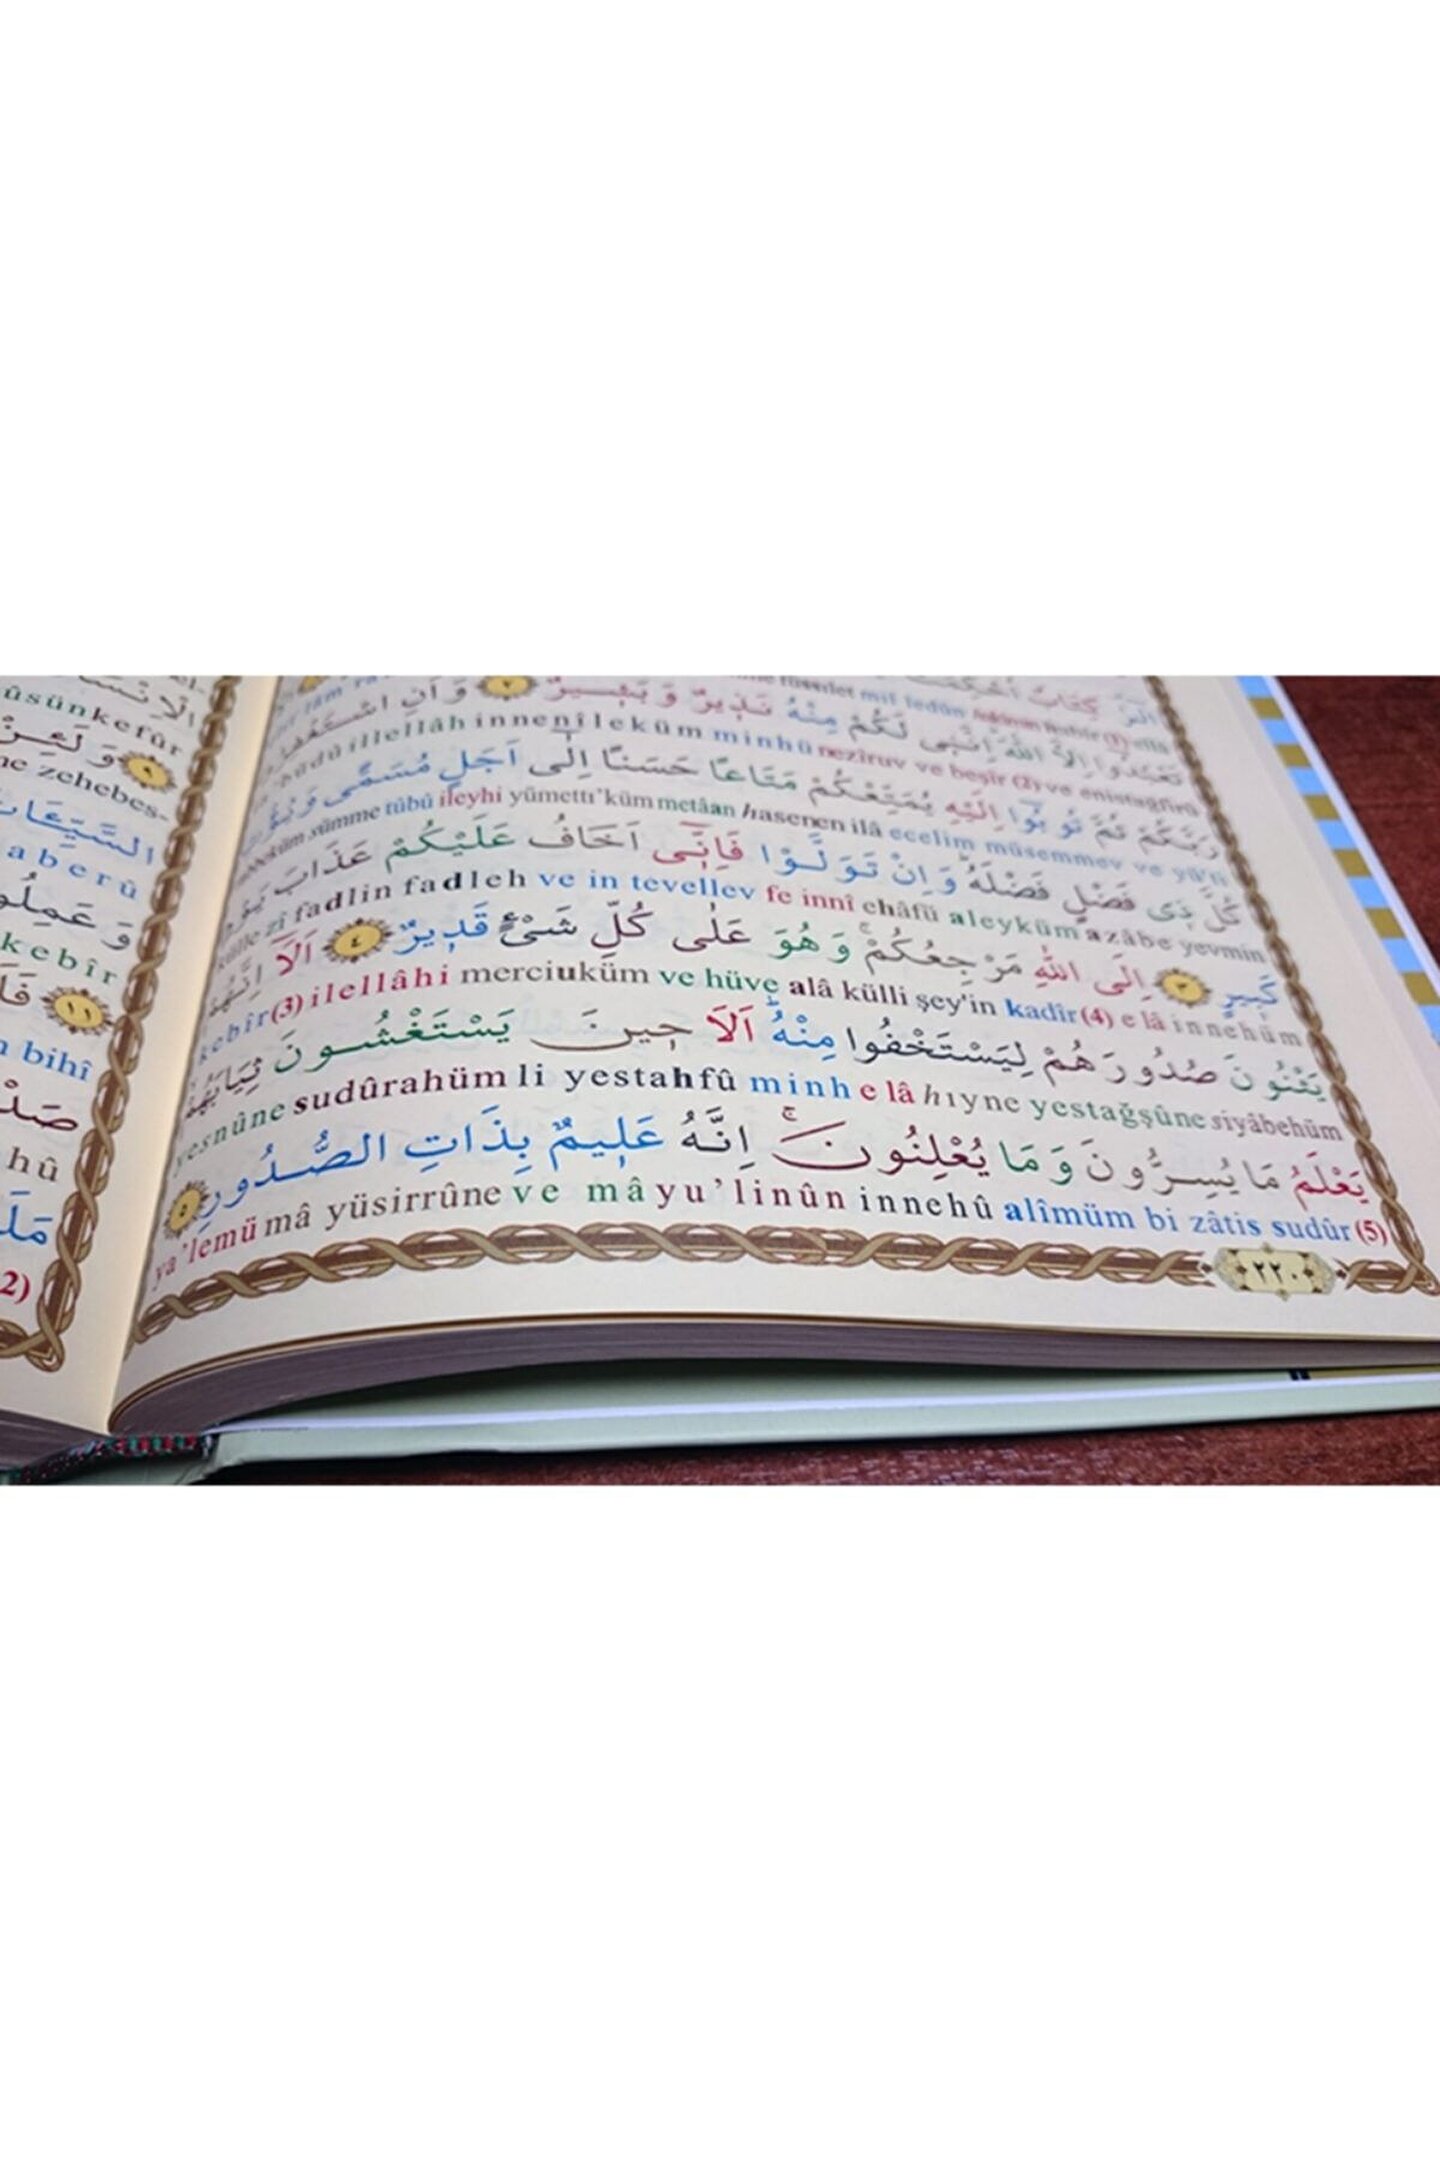 الٓرٰ كِتَابٌ
تَعْبُدُٓوا اِلَّا اللّٰهَ اِنَّنٖى لَكُمْ مِنْهُ نَذٖيرٌ وَ بَشٖيرٌ ٢ وَ اَنِ اسْتَغْفِرُوا
illellâh innenî leküm minhü nezîruv ve beşîr (2) ve enistağfirû
رَبَّكُمْ ثُمَّ تُوبُٓوا اِلَيْهِ يُمَتِّعْكُمْ مَتَاعًا حَسَنًا اِلٰٓى اَجَلٍ مُسَمًّى وَ يُؤْتِ
sümme tûbû ileyhi yümettı'küm metâan hasenen ilâ ecelim müsemmev ve yü'ti
كُلَّ ذٖى فَضْلٍ فَضْلَهُ وَ اِنْ تَوَلَّوْا فَاِنّٖٓى اَخَافُ عَلَيْكُمْ عَذَابَ يَوْمٍ
külle zî fadlin fadleh ve in tevellev fe innî ehâfü aleyküm azâbe yevmin
كَبٖيرٍ ٣ اِلَى اللّٰهِ مَرْجِعُكُمْ وَ هُوَ عَلٰى كُلِّ شَىْءٍ قَدٖيرٌ ٤ اَلَٓا اِنَّهُمْ
kebîr (3) ilellâhi merciuküm ve hüve alâ külli şey'in kadîr (4) e lâ innehüm
يَثْنُونَ صُدُورَهُمْ لِيَسْتَخْفُوا مِنْهُ اَلَا حٖينَ يَسْتَغْشُونَ ثِيَابَهُمْ
yesnûne sudûrahüm li yestahfû minh e lâ hıyne yestağşûne siyâbehüm
يَعْلَمُ مَا يُسِرُّونَ وَ مَا يُعْلِنُونَ اِنَّهُ عَلٖيمٌ بِذَاتِ الصُّدُورِ ٥
ya'lemü mâ yüsirrûne ve mâ yu'linûn innehû alîmüm bi zâtis sudûr (5)
٢٢٠
ûsünkefûr
وَ لَئِنْ ٩
zehebes-
aberû
وَ عَمِلُوا
kebîr
١١
bihî
hû
2)